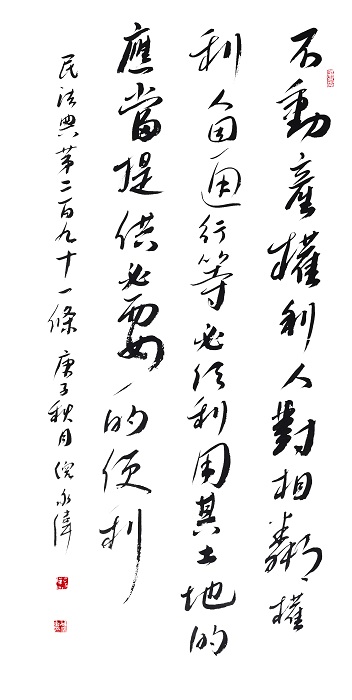 不動產權利人對相鄰權
利人因通行等必須利用其土地的
應當提供必要的便利
民法典第二百九十一條 庚子秋月 倪永偉